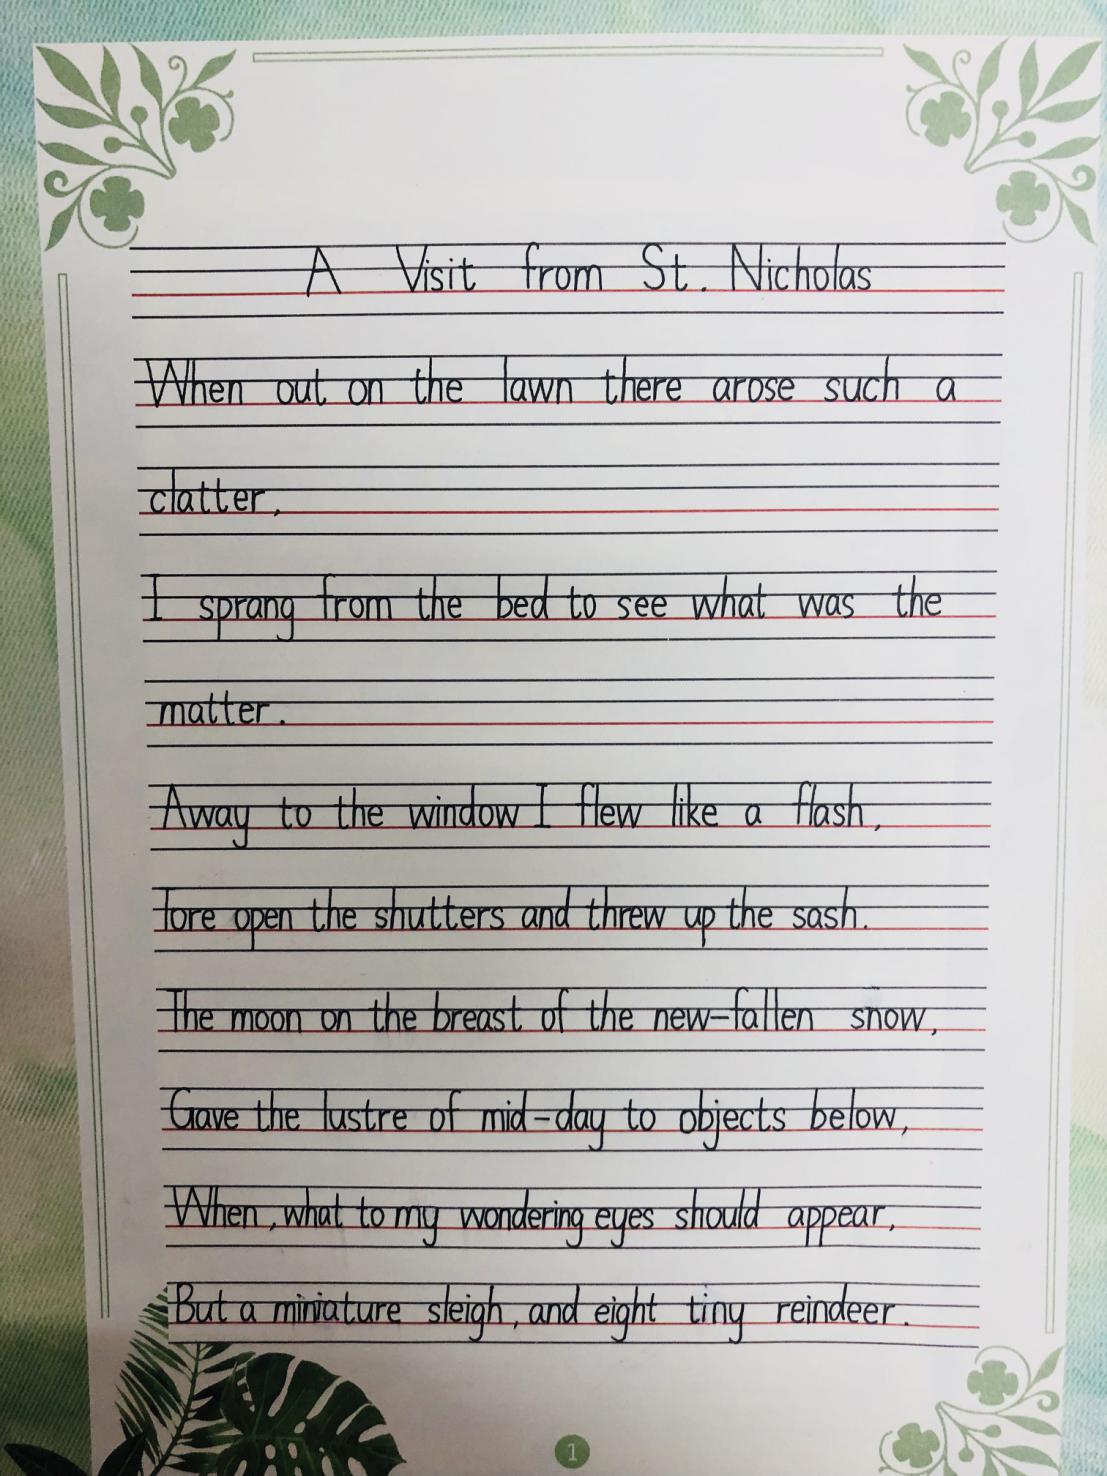 A Visit from St. Nicholas
When out on the lawn there arose such a
clatter,
I sprang from the bed to see what was the
matter.
Away to the window I flew like a flash,
Tore open the shutters and threw up the sash.
The moon on the breast of the new-fallen snow,
Gave the lustre of mid-day to objects below,
When, what to my wondering eyes should appear,
But a miniature sleigh, and eight tiny reindeer.
1